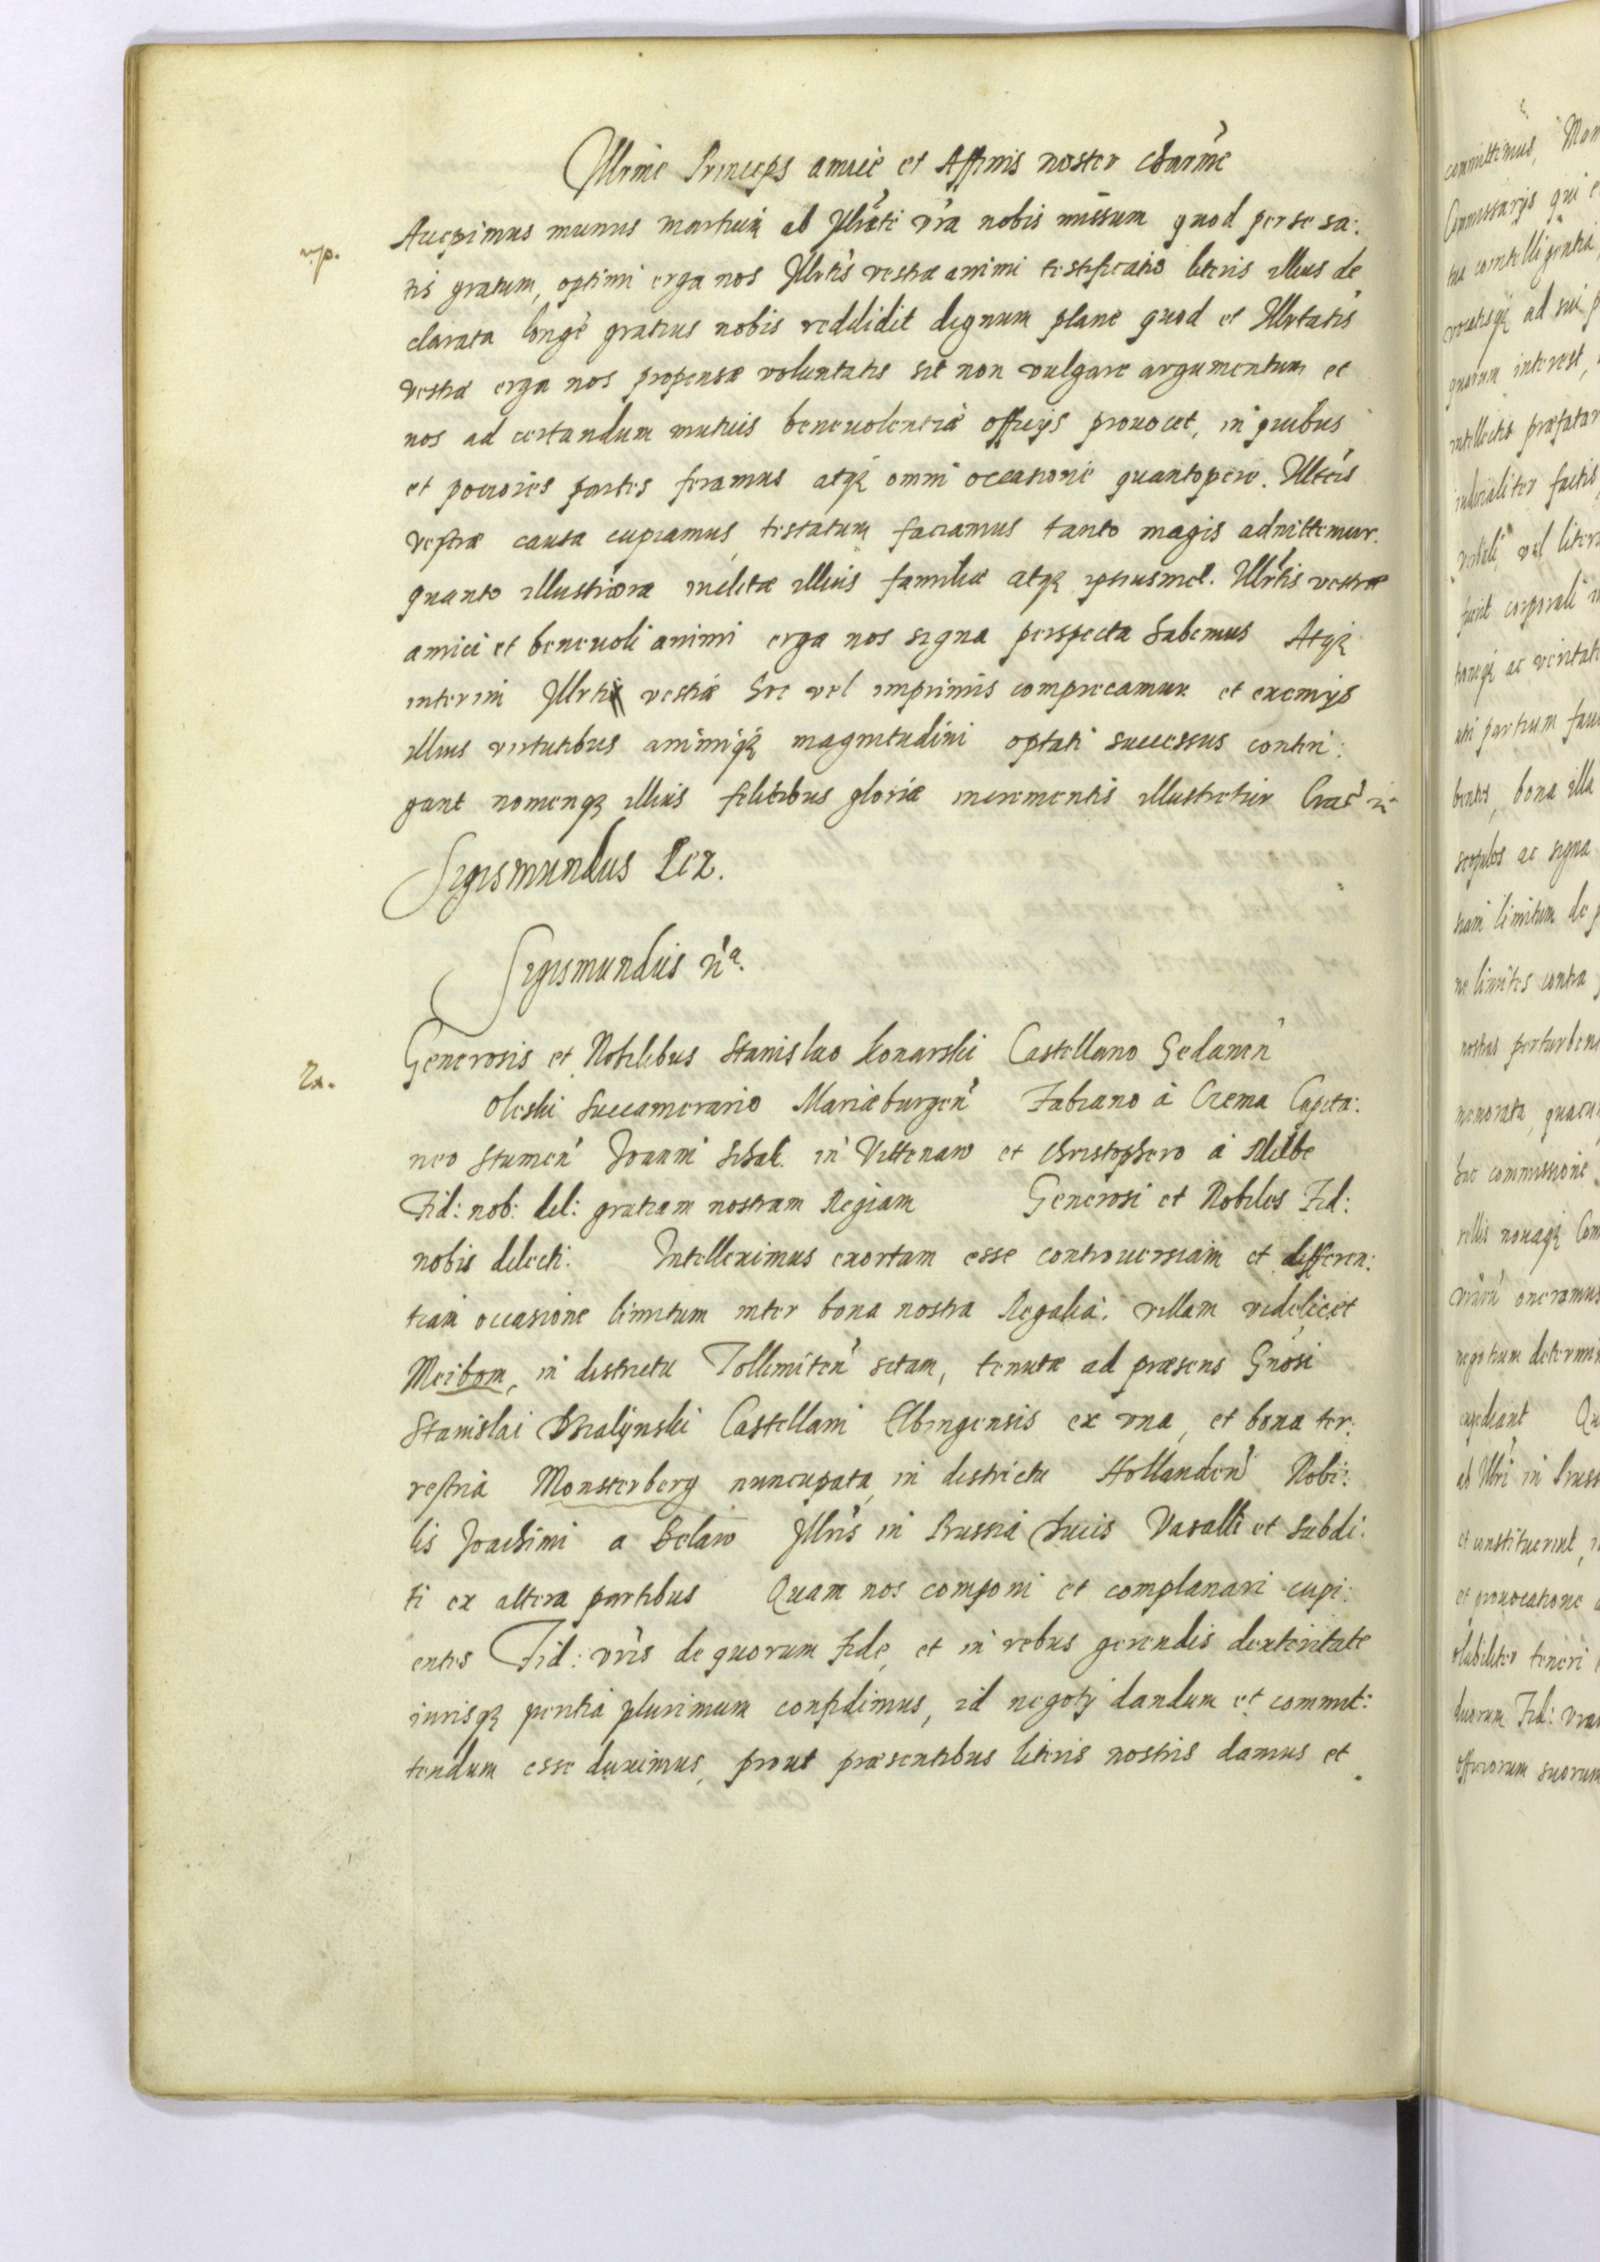 Illrime Princeps amice et Affinis noster charme
np.
Accepimus munus martium ab Illrate vra nobis missum quod per se sa:
tis gratum, optimi erga nos Illrtis vestræ animi testificatio literis illius de
clarata longè gratius nobis reddidit dignum plane quod et Illrtatis
vestræ erga nos propensæ voluntatis sit non vulgare argumentum et
nos ad certandum mutuis beneuolentiæ officijs prouocet, in quibus
et potiores partes feramus atq omni occasione quantopere Illrtis
vestræ causa cupiamus, testatum faciamus tanto magis adnittemur.
quanto illustriora inclitæ illius familiæ atq ipsiusmet Illrtis vestræ
amici et beneuoli animi erga nos signa perspecta habemus Atq
interim Illrti vestræ hoc vel imprimis comprecamur et eximijs
illius virtutibus animiq magnitudini optati successus contin:
gant nomenq illius felicibus gloriæ incrementis illustretur Crac
Sigismundus Rex.
Sigismundus
2a.
Generosis et Nobilibus Stanislao Konarski Castellano Gedanen
Oleski Succamerario Mariæburgen Fabiano à Czema Capita:
neo Stumen Joanni Schal in Vittenaw et Christophero à Milbe
Fid: nob: del: gratiam nostram Regiam Generosi et Nobiles Fid:
nobis dilecti. Intelleximus exortam esse controuersiam et differen:
tiam occasione limitum inter bona nostra Regalia: villam videlicet
Meibom, in districtu Tollimiten sitam, tenutæ ad præsens Gnosi
Stanislai Dzialijnski Castellani Elbingensis ex vna, et bona ter:
restria Monsterberg nuncupata in districtu Hollanden Nobi:
lis Joachimi a Belaw Illris in Prussia Ducis Vasalli et subdi:
ti ex altera partibus Quam nos componi et complanari cupi:
entes Fid: vris de quorum fide, et in rebus gerendis dexteritate
iurisq peritia plurimum confidimus, id negotij dandum et commit:
tendum esse duximus, prout præsentibus literis nostris damus et
committimus,
Commissarijs qui
quarum interest,
intellectis
iudicialiter factis
vel
corporali
ac
partium
bona illa
scopulos ac signa
limitum de
ne limites contra
nostras
hac commissione
nouaq
oneramus
negotium
in
et constituerint,
et prouocatione
teneri
quorum Fid:
officiorum suorum